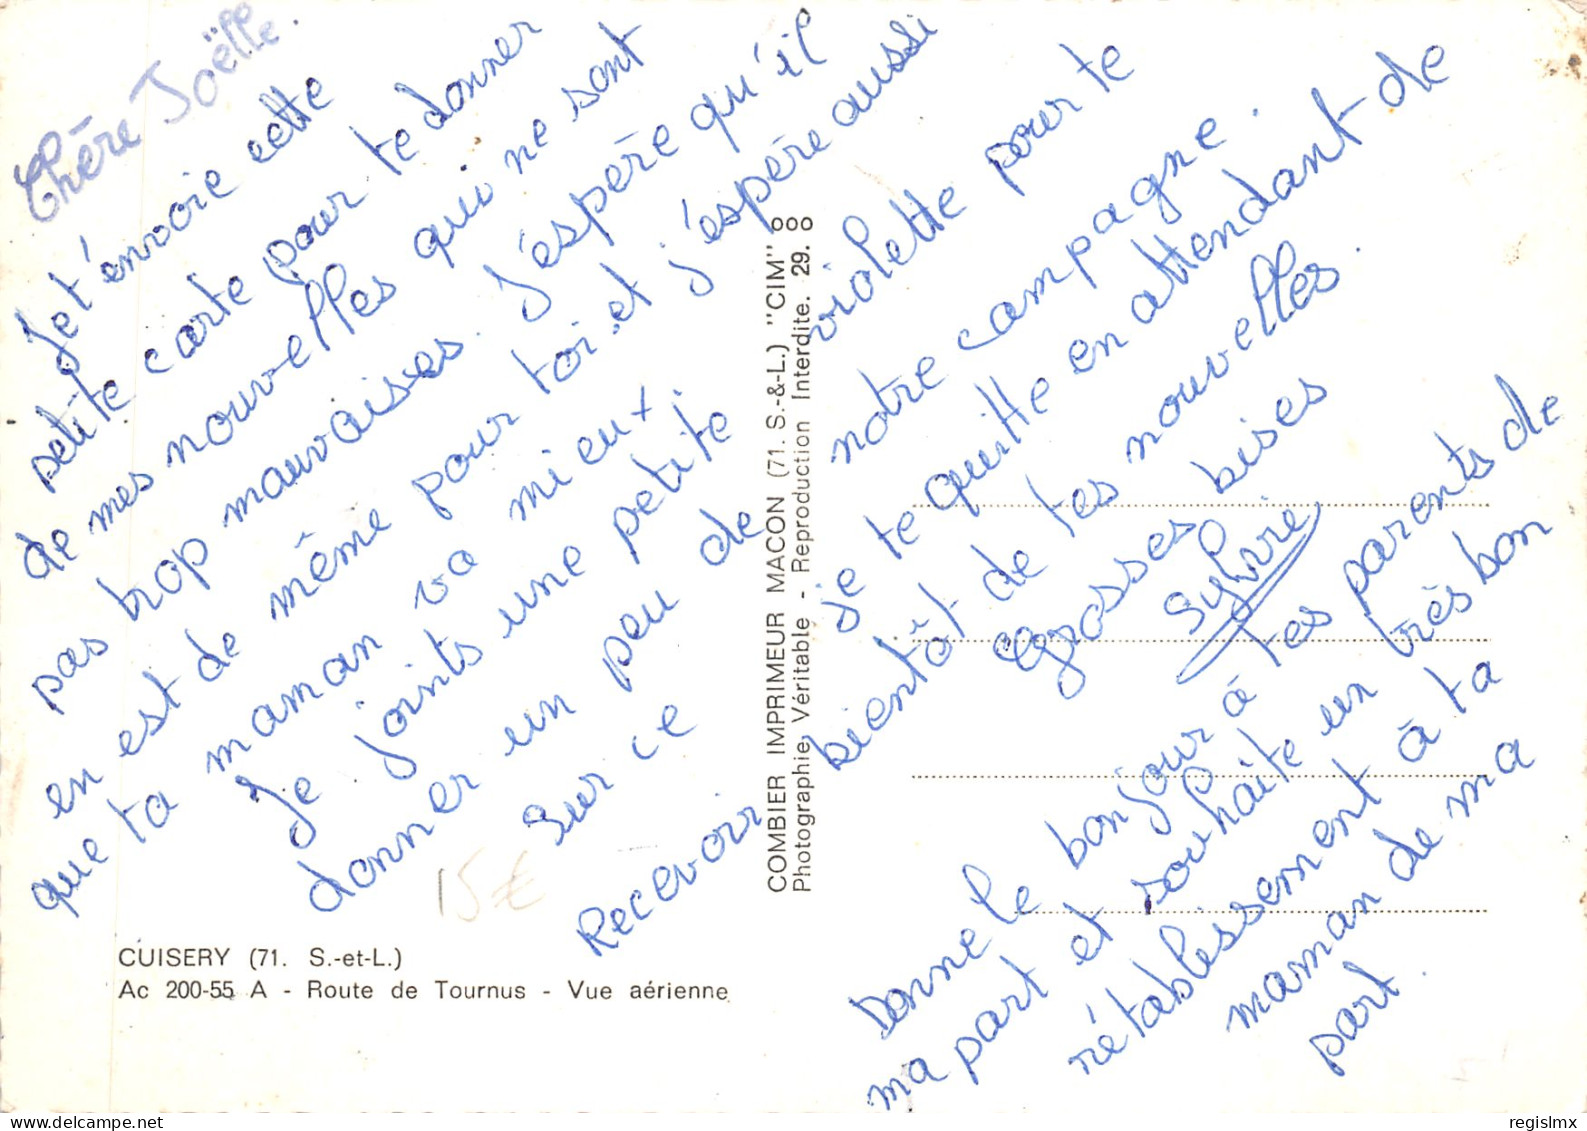 Chère Joëlle.
Je t'envoie cette
petite carte pour te donner
de mes nouvelles qui ne sont
pas trop mauvaises. J'espère qu'il
en est de même pour toi et j'espère aussi
que ta maman va mieux.
Je joints une petite
violette pour te
donner un peu de
notre campagne.
Sur ce
je te quitte en attendant de
Recevoir
bientôt de tes nouvelles.
Grosses bises
Sylvie
Donne le bonjour à tes parents de
ma part et souhaite un très bon
rétablissement à ta
maman de ma
part.
COMBIER IMPRIMEUR MACON (71. S.-&-L.) "CIM"
Photographie Véritable - Reproduction Interdite. 29.
15€
CUISERY (71. S.-et-L.)
Ac 200-55 A - Route de Tournus - Vue aérienne
regislmx